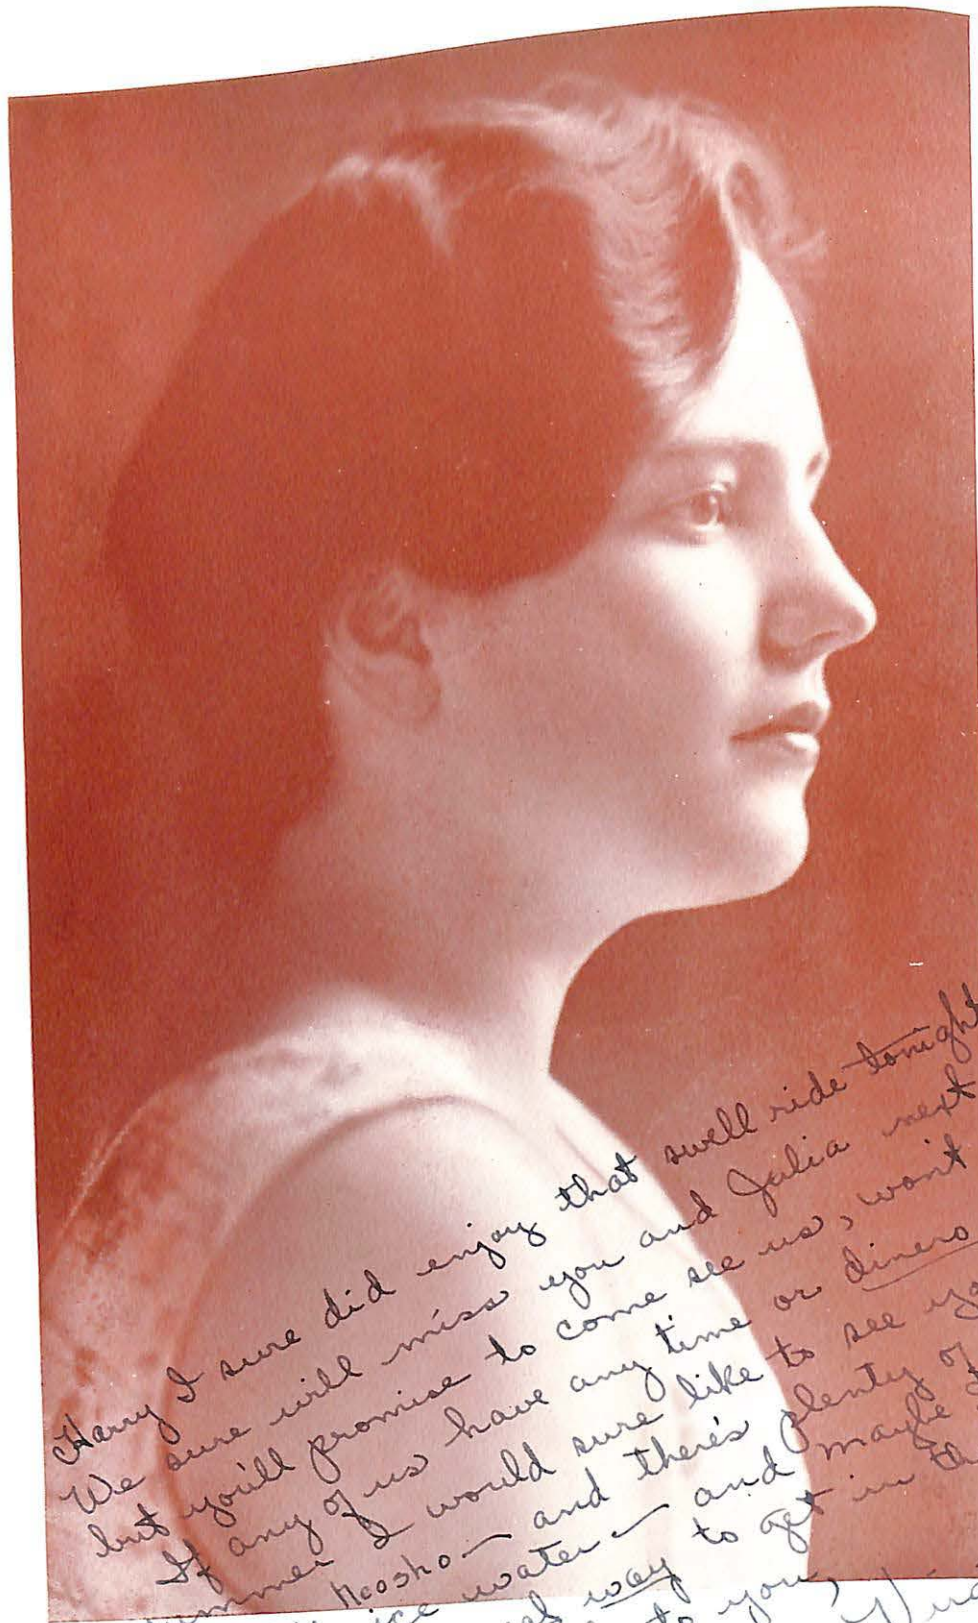 Harry I sure did enjoy that swell ride tonight
We sure will miss you and Julia next
but you'll promise to come see us, won't
If any of us have any time or dinero
I would sure like to see
Neosho — and there's plenty of
ice water — and maybe
way to get in the
to you,